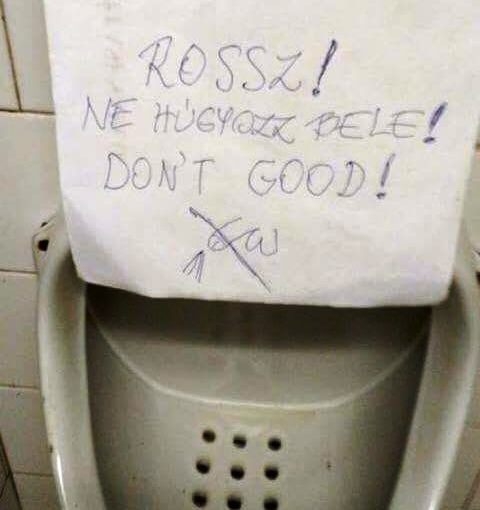 ROSSZ!
NE HÚGYOZZ BELE!
DON'T GOOD!